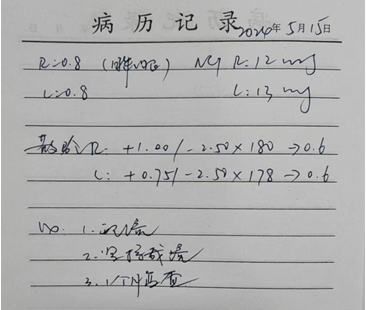 病历记录 2024年5月15日
R:0.8 (日常视力) NCT R:12 mmHg
L:0.8 L:13 mmHg
散验 R: +1.00/-2.50×180→0.6
L: +0.75/-2.50×178→0.6
1.
2.坚持戴镜
3.1个月复查